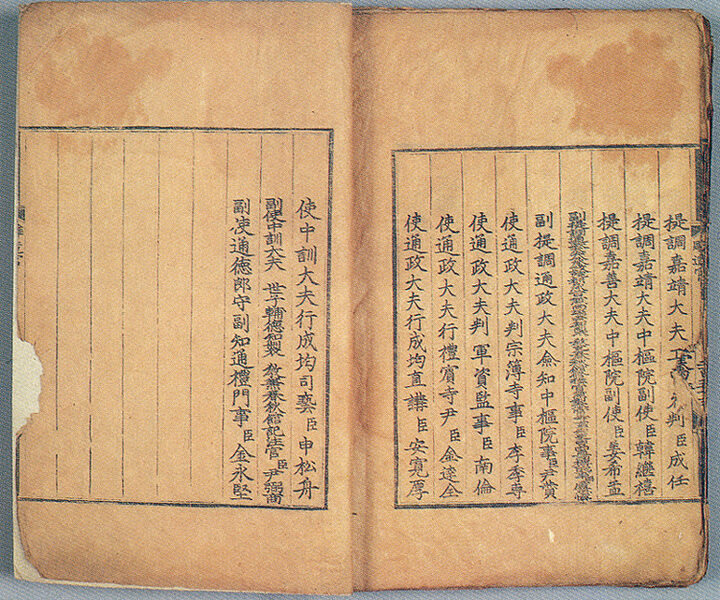 提調嘉靖大夫工判臣成任
提調嘉靖大夫中樞院副使臣韓繼禧
提調嘉善大夫中樞院副使臣姜希孟
副提調通政大夫僉知中樞院事臣尹贊
使通政大夫判宗簿寺事臣李季專
使通政大夫判軍資監事臣南倫
使通政大夫行禮賓寺尹臣金達全
使通政大夫行成均直講臣安寬厚
使中訓大夫行成均司藝臣申松舟
副使中訓大夫 世子輔德知製 教兼春秋館記注官臣尹弼商
副使通德郎守副知通禮門事臣金永堅